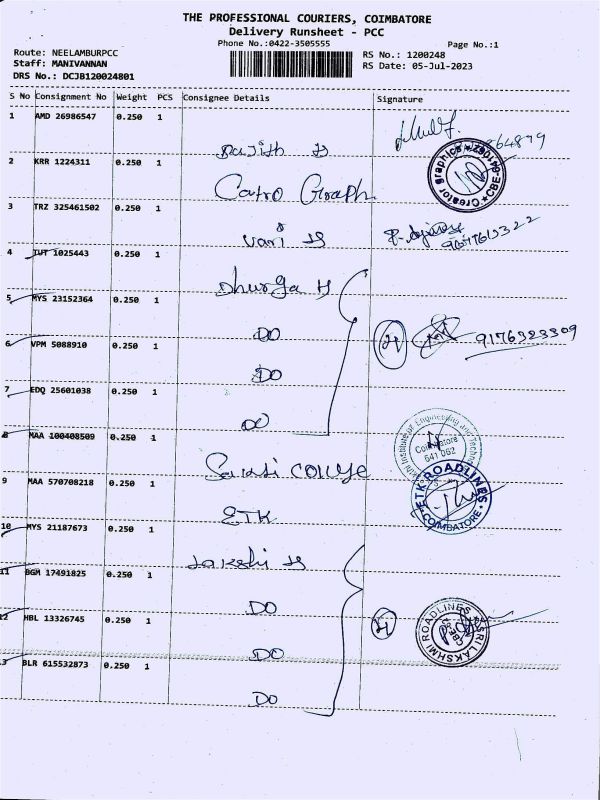 THE PROFESSIONAL COURIERS, COIMBATORE
Delivery Runsheet - PCC
Phone No.:0422-3505555
Page No.:1
Route: NEELAMBURPCC
RS No.: 1200248
Staff: MANIVANNAN
RS Date: 05-Jul-2023
DRS No.: DCJB120024801
S No Consignment No Weight PCS Consignee Details Signature
1 AMD 26986547 0.250 1
2 KRR 1224311 0.250 1
Catro Graph
3 TRZ 325461502 0.250 1
Vari
4 TUT 1025443 0.250 1
Dhurga H
5 MYS 23152364 0.250 1
DO
9176323309
6 VPM 5088910 0.250 1
DO
7 EDQ 25601038 0.250 1
DO
8 MAA 100408509 0.250 1
Coimbatore
641 062
9 MAA 570708218 0.250 1
ETK
ETK ROADLINES
COIMBATORE
10 MYS 21187673 0.250 1
11 BGM 17491825 0.250 1
DO
12 HBL 13326745 0.250 1
DO
SRI LAKSHMI ROADLINES
13 BLR 615532873 0.250 1
DO